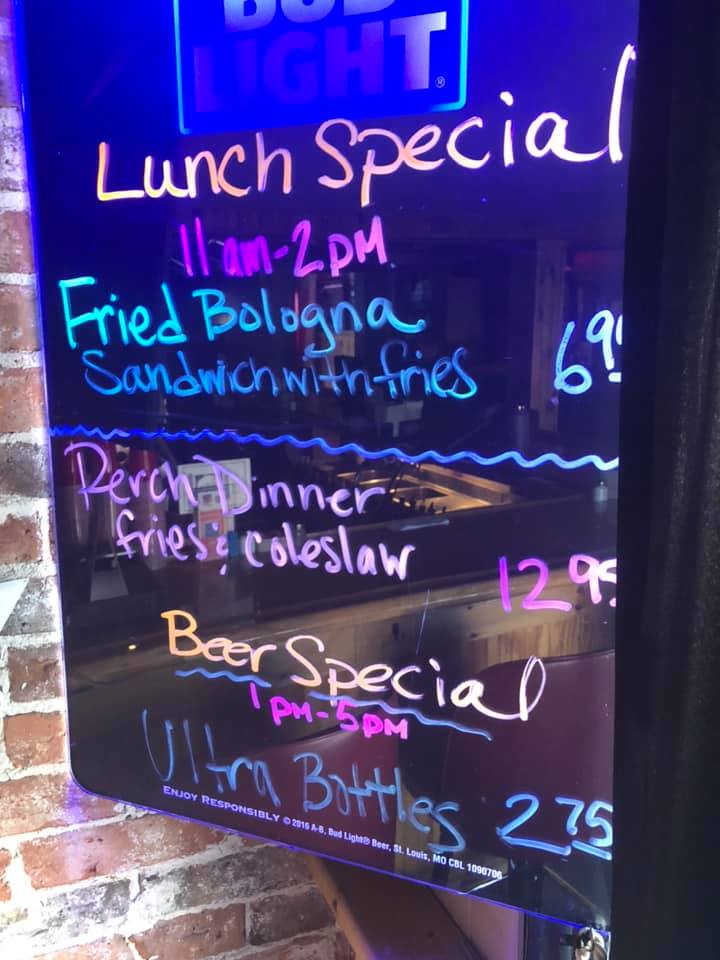 BUD
LIGHT®
Lunch Special
11am-2pm
Fried Bologna
Sandwich with fries
Perch Dinner
fries & coleslaw
1295
Beer Special
1pm-5pm
Ultra Bottles 275
ENJOY RESPONSIBLY ©2016 A-B, Bud Light® Beer, St. Louis, MO CBL 1090706